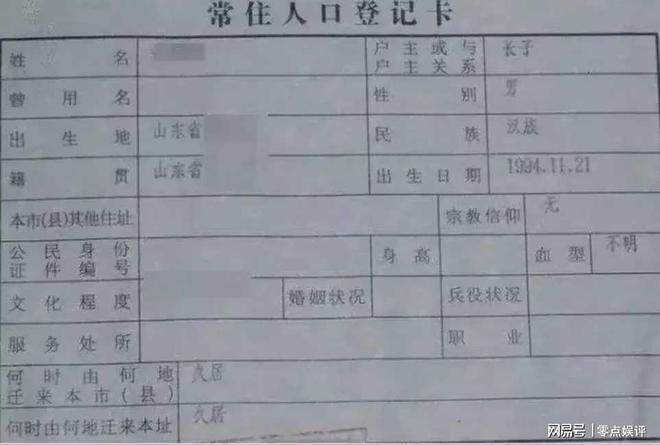 常住人口登记卡
姓名 户主或与户主关系 长子
曾用名 性别 男
出生地 山东省 民族 汉族
籍贯 山东省 出生日期 1994.11.21
本市(县)其他住址 宗教信仰 无
公民身份证件编号 身高 血型 不明
文化程度 婚姻状况 兵役状况
服务处所 职业
何时由何地迁来本市(县) 久居
何时由何地迁来本址 久居
网易号 | 零点娱评